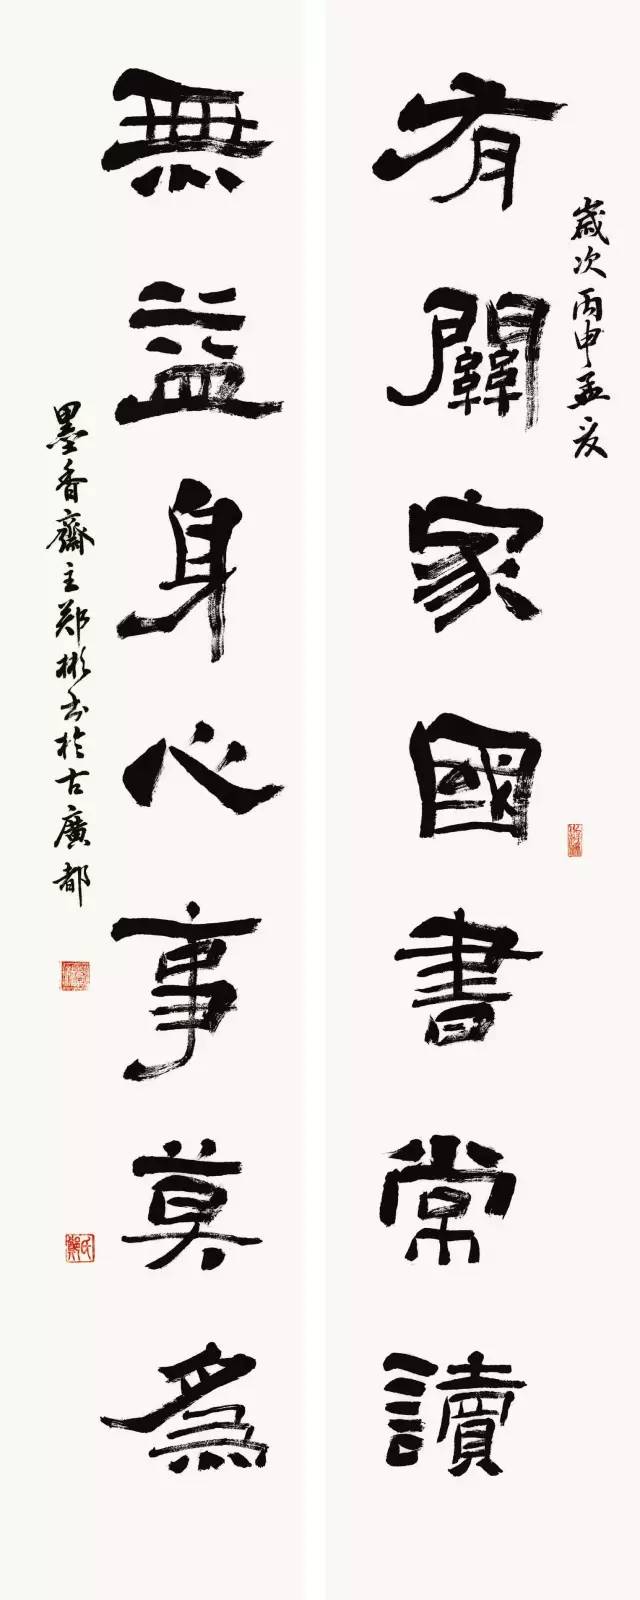 歲次丙申孟夏
有關家國書常讀
無益身心事莫為
墨香齋主郑彬书於古廣都